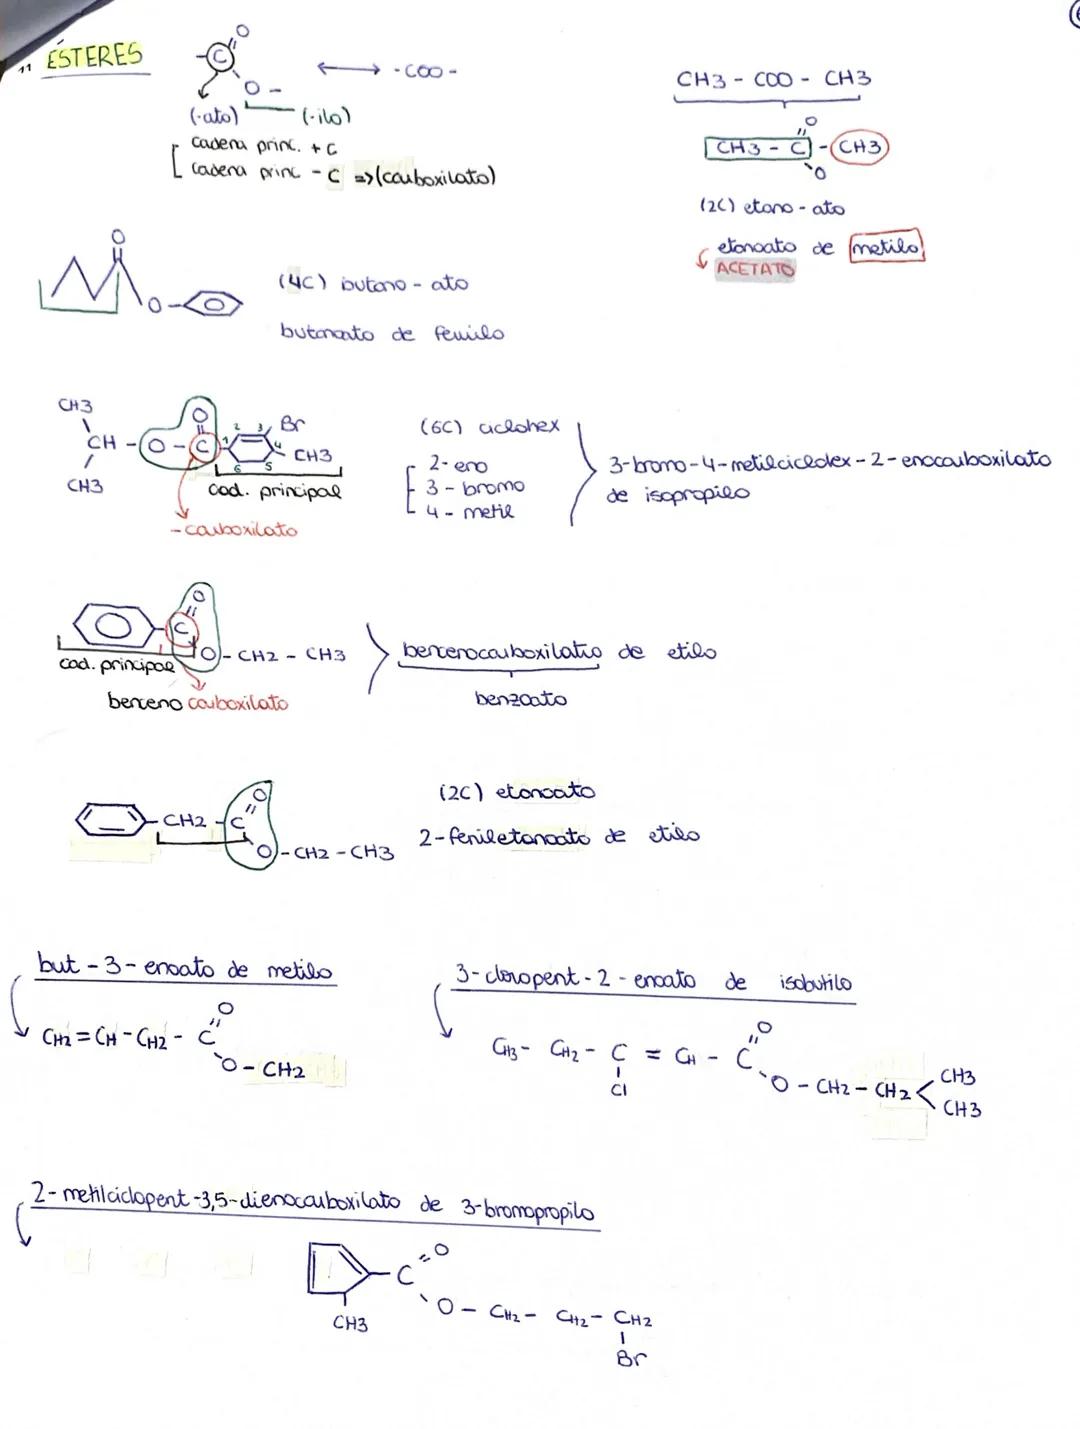 11 ÉSTERES
-C=O
O-
⟷ -COO-
(-ato) (-ilo)
Cadena princ. + C
Cadena princ - C => (carboxilato)
CH3 - COO - CH3
O
CH3 - C - CH3
O
(2C) etano - ato
etanoato de metilo
ACETATO
O
O
(4C) butano - ato
butanoato de fenilo
CH3
CH - O - C
O
CH3
1 2 3 4 5 6
Br
CH3
cad. principal
- carboxilato
(6C) ciclohex
2- eno
3 - bromo
4 - metil
3-bromo-4-metilciclohex-2-enocarboxilato
de isopropilo
O
C
O - CH2 - CH3
cad. principal
benceno carboxilato
bencenocarboxilatio de etilo
benzoato
O
CH2 - C
O - CH2 - CH3
(2C) etanoato
2-feniletanoato de etilo
but - 3 - enoato de metilo
O
CH2 = CH - CH2 - C
O - CH2
3-cloropent - 2 - enoato de isobutilo
O
CH3 - CH2 - C = CH - C
Cl
O - CH2 - CH2
CH3
CH3
2-metilciclopent-3,5-dienocarboxilato de 3-bromopropilo
O
C
O - CH2 - CH2 - CH2
CH3
Br